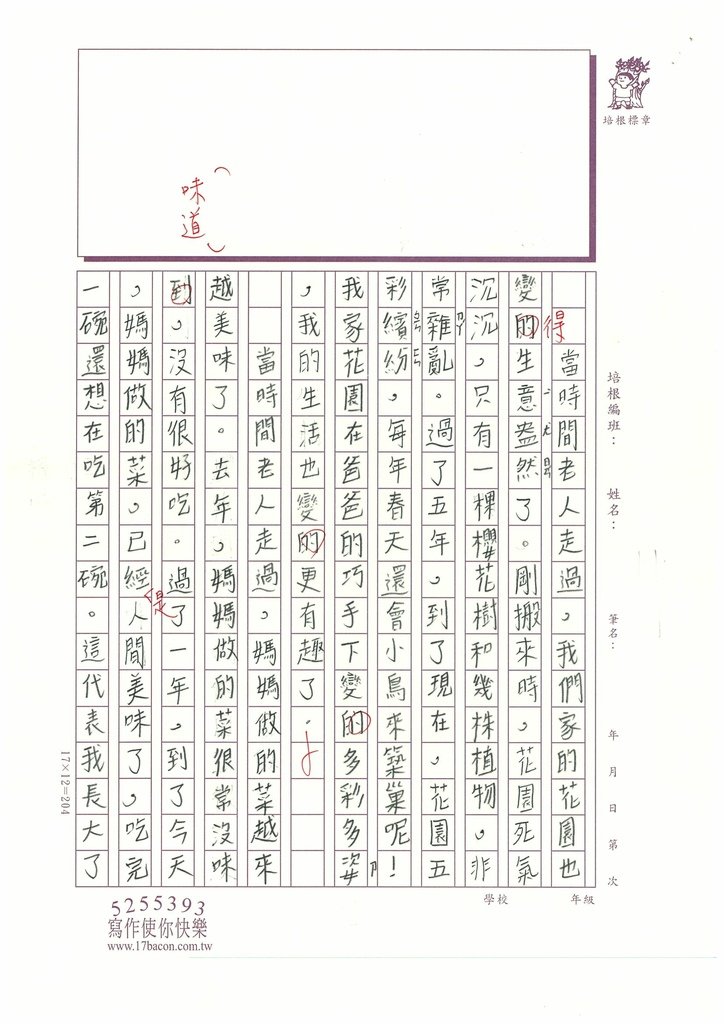 培根標章
培根編班：
姓名：
筆名：
年 月 日 第 次
（味道）
當時間老人走過，我們家的花園也
得
變的生意盎然了。剛搬來時，花園死氣
沉沉，只有一棵櫻花樹和幾株植物，非
常雜亂。過了五年，到了現在，花園五
彩繽紛，每年春天還會小鳥來築巢呢！
我家花園在爸爸的巧手下變的多彩多姿
，我的生活也變的更有趣了．
當時間老人走過，媽媽做的菜越來
越美味了。去年，媽媽做的菜很常沒味
到，沒有很好吃。過了一年，到了今天
是
，媽媽做的菜，已經人間美味了，吃完
一碗還想在吃第二碗。這代表我長大了
17×12=204
學校
年級
5255393
寫作使你快樂
www.17bacon.com.tw